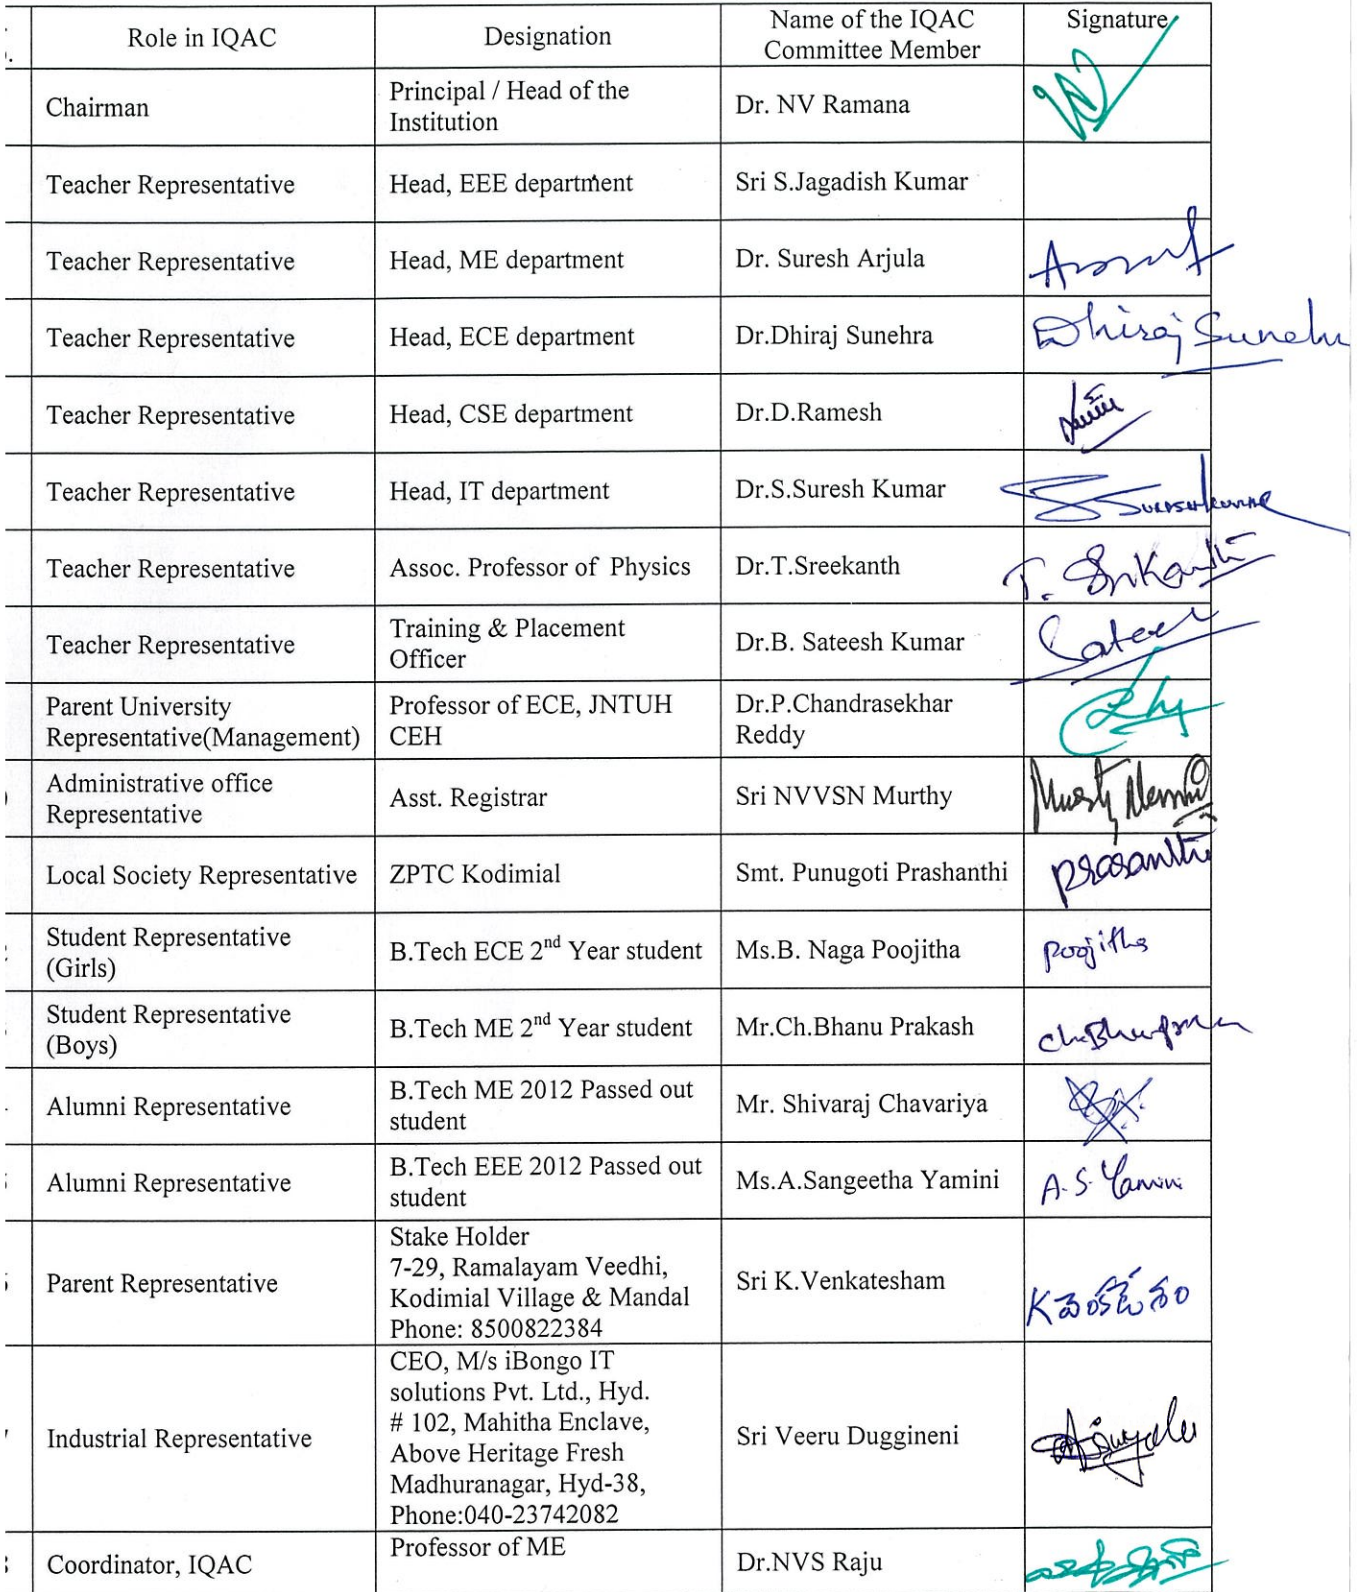 Role in IQAC
Designation
Name of the IQAC
Committee Member
Signature
Chairman
Principal / Head of the
Institution
Dr. NV Ramana
Teacher Representative
Head, EEE department
Sri S.Jagadish Kumar
Teacher Representative
Head, ME department
Dr. Suresh Arjula
Teacher Representative
Head, ECE department
Dr.Dhiraj Sunehra
Dhiraj Sunehra
Teacher Representative
Head, CSE department
Dr.D.Ramesh
Teacher Representative
Head, IT department
Dr.S.Suresh Kumar
Sureshkumar
Teacher Representative
Assoc. Professor of Physics
Dr.T.Sreekanth
T. Srikanth
Teacher Representative
Training & Placement
Officer
Dr.B. Sateesh Kumar
Sateesh
Parent University
Representative(Management)
Professor of ECE, JNTUH
CEH
Dr.P.Chandrasekhar
Reddy
Administrative office
Representative
Asst. Registrar
Sri NVVSN Murthy
Local Society Representative
ZPTC Kodimial
Smt. Punugoti Prashanthi
Prasanthi
Student Representative
(Girls)
B.Tech ECE 2nd Year student
Ms.B. Naga Poojitha
Poojitha
Student Representative
(Boys)
B.Tech ME 2nd Year student
Mr.Ch.Bhanu Prakash
Alumni Representative
B.Tech ME 2012 Passed out
student
Mr. Shivaraj Chavariya
Alumni Representative
B.Tech EEE 2012 Passed out
student
Ms.A.Sangeetha Yamini
A.S. Yamini
Parent Representative
Stake Holder
7-29, Ramalayam Veedhi,
Kodimial Village & Mandal
Phone: 8500822384
Sri K.Venkatesham
K వెంకటేశం
Industrial Representative
CEO, M/s iBongo IT
solutions Pvt. Ltd., Hyd.
# 102, Mahitha Enclave,
Above Heritage Fresh
Madhuranagar, Hyd-38,
Phone:040-23742082
Sri Veeru Duggineni
Coordinator, IQAC
Professor of ME
Dr.NVS Raju